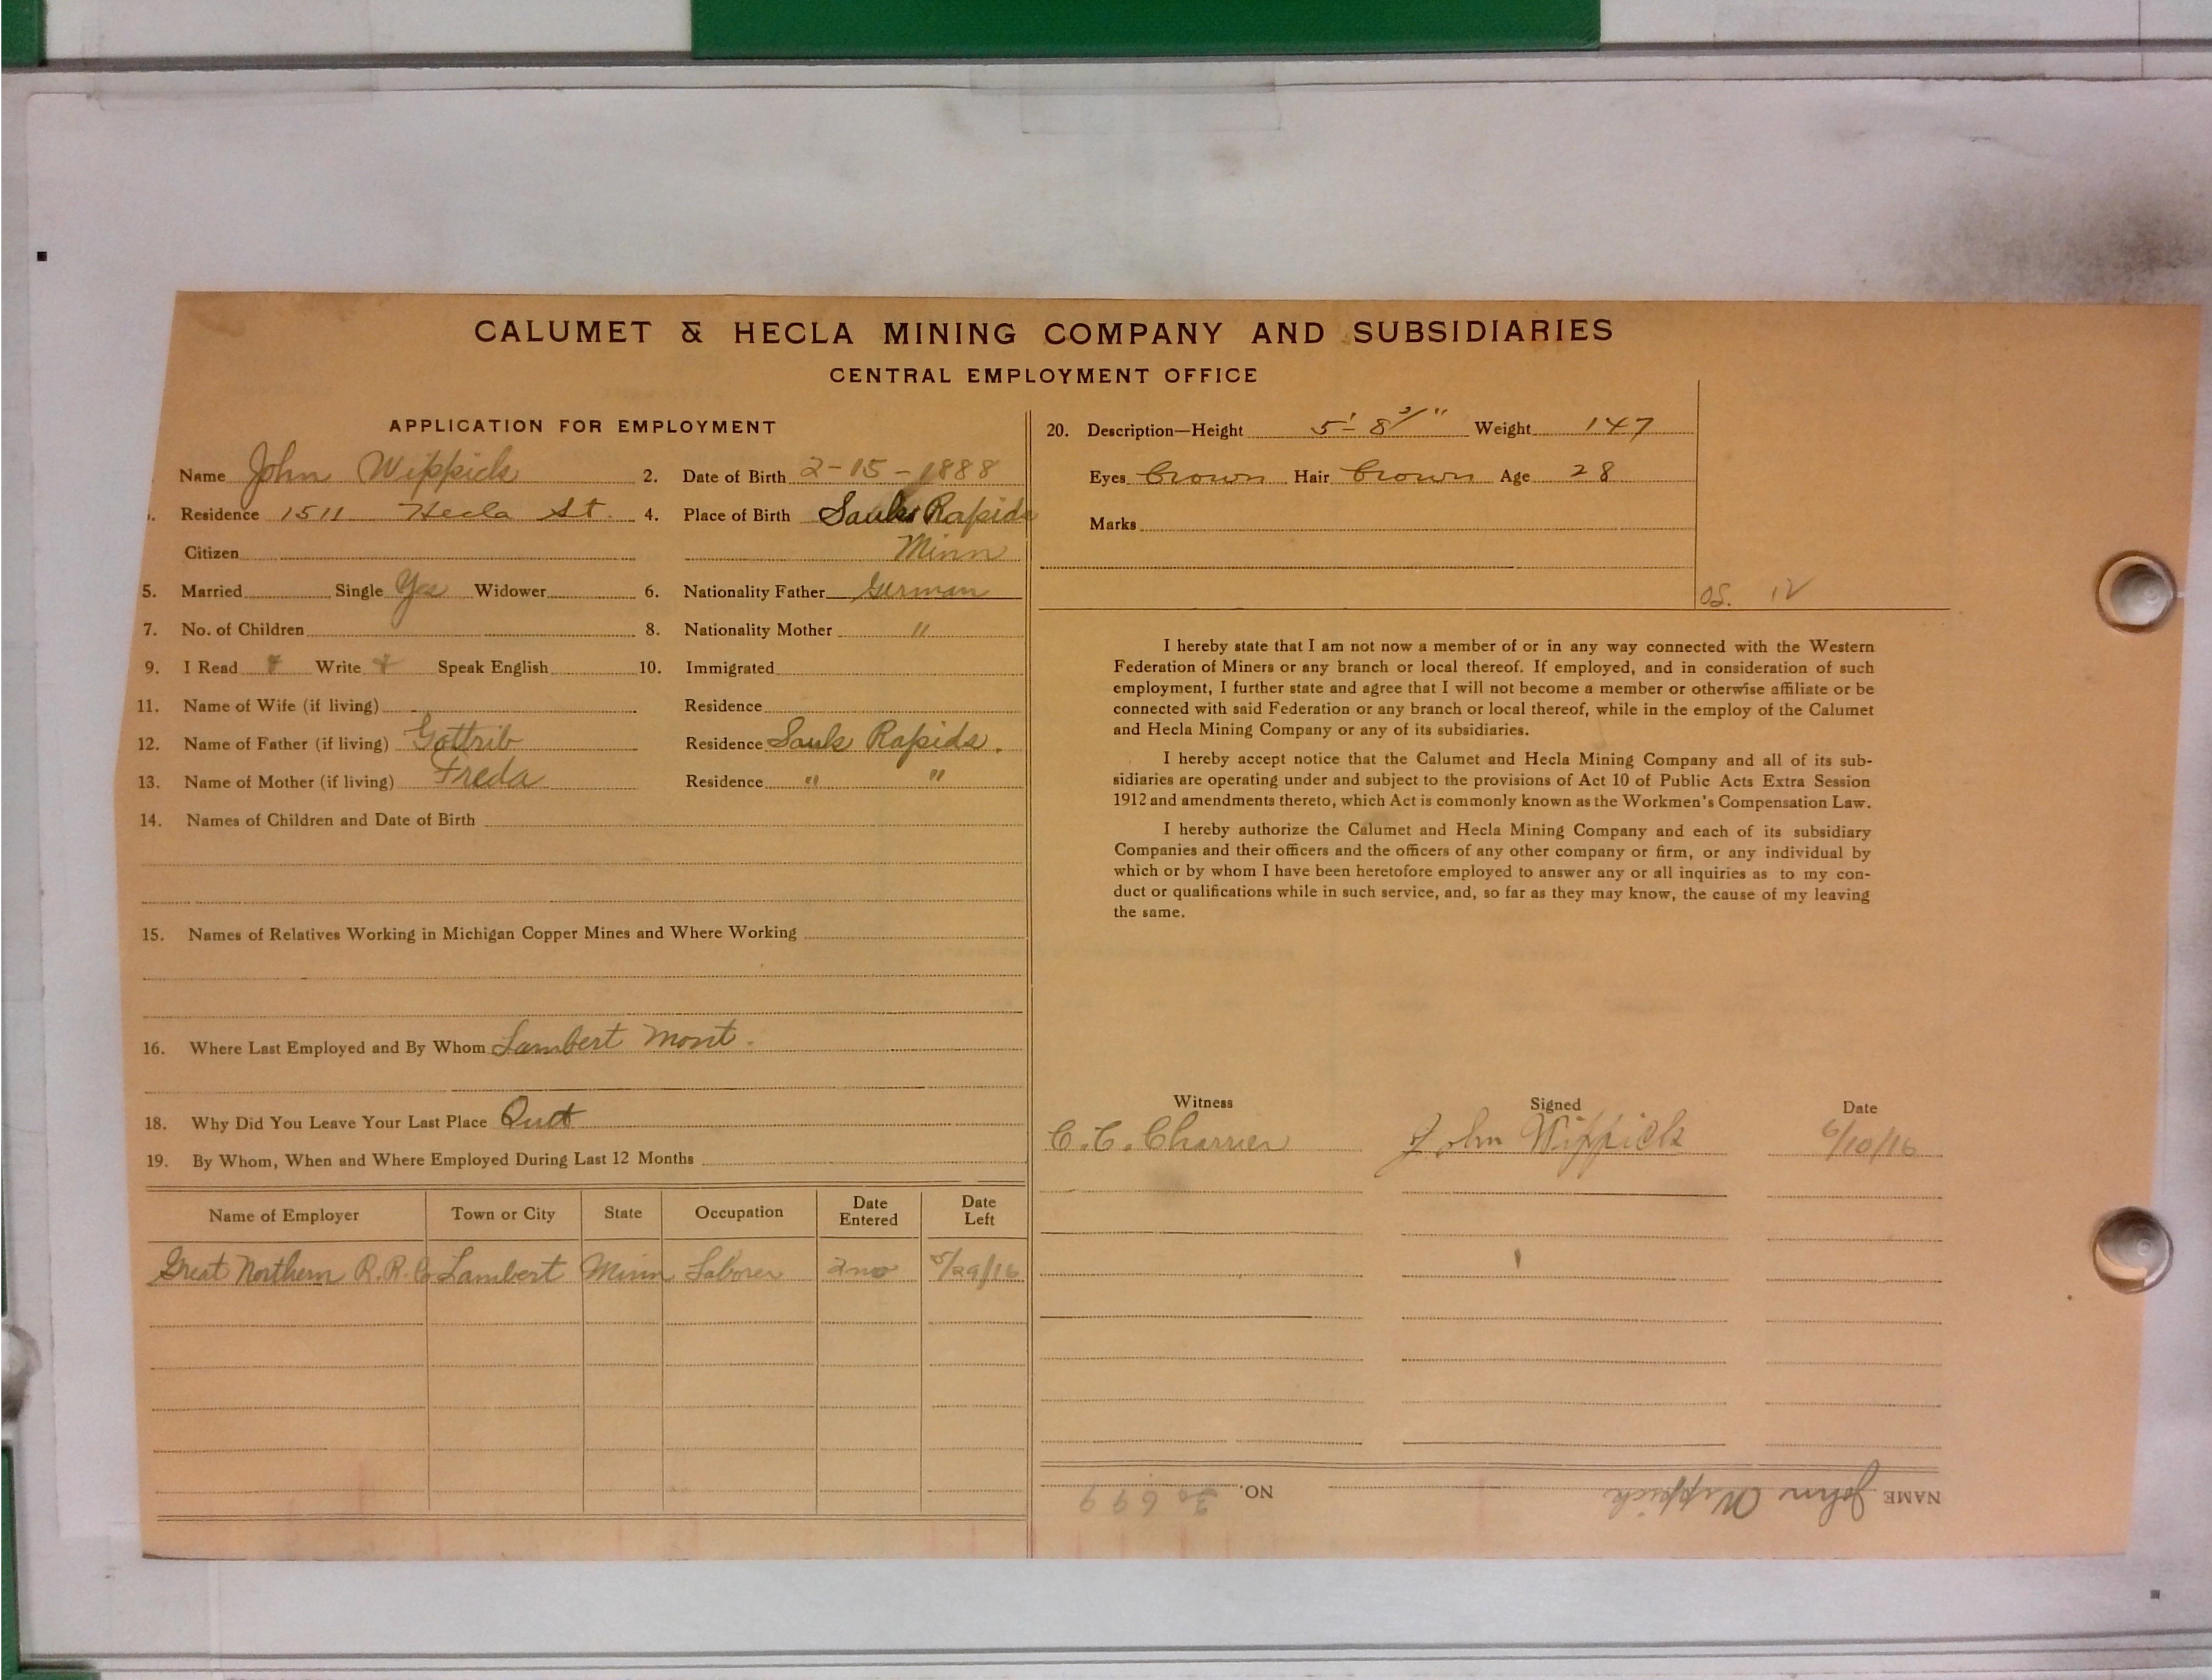 CALUMET & HECLA MINING COMPANY AND SUBSIDIARIES
CENTRAL EMPLOYMENT OFFICE
APPLICATION FOR EMPLOYMENT
Name John Wippich 2. Date of Birth 2-15-1888
Residence 1511 Hecla St. 4. Place of Birth Sauk Rapids
Citizen Minn
5. Married Single Yes Widower 6. Nationality Father German
7. No. of Children 8. Nationality Mother "
9. I Read Write Speak English 10. Immigrated
11. Name of Wife (if living) Residence
12. Name of Father (if living) Gottrib Residence Sauk Rapids.
13. Name of Mother (if living) Freda Residence " "
14. Names of Children and Date of Birth
15. Names of Relatives Working in Michigan Copper Mines and Where Working
16. Where Last Employed and By Whom Lambert Mont.
18. Why Did You Leave Your Last Place Quit
19. By Whom, When and Where Employed During Last 12 Months
Name of Employer Town or City State Occupation Date Entered Date Left
Great Northern R.R. Co Lambert Minn Laborer 2 mo 5/29/16
20. Description—Height 5' 8 Weight 147
Eyes Brown Hair Brown Age 28
Marks
OS. 12
I hereby state that I am not now a member of or in any way connected with the Western
Federation of Miners or any branch or local thereof. If employed, and in consideration of such
employment, I further state and agree that I will not become a member or otherwise affiliate or be
connected with said Federation or any branch or local thereof, while in the employ of the Calumet
and Hecla Mining Company or any of its subsidiaries.
I hereby accept notice that the Calumet and Hecla Mining Company and all of its sub-
sidiaries are operating under and subject to the provisions of Act 10 of Public Acts Extra Session
1912 and amendments thereto, which Act is commonly known as the Workmen's Compensation Law.
I hereby authorize the Calumet and Hecla Mining Company and each of its subsidiary
Companies and their officers and the officers of any other company or firm, or any individual by
which or by whom I have been heretofore employed to answer any or all inquiries as to my con-
duct or qualifications while in such service, and, so far as they may know, the cause of my leaving
the same.
Witness Signed Date
C. C. Charrier John Wippich 6/10/16
NAME John Wippich NO. 30699